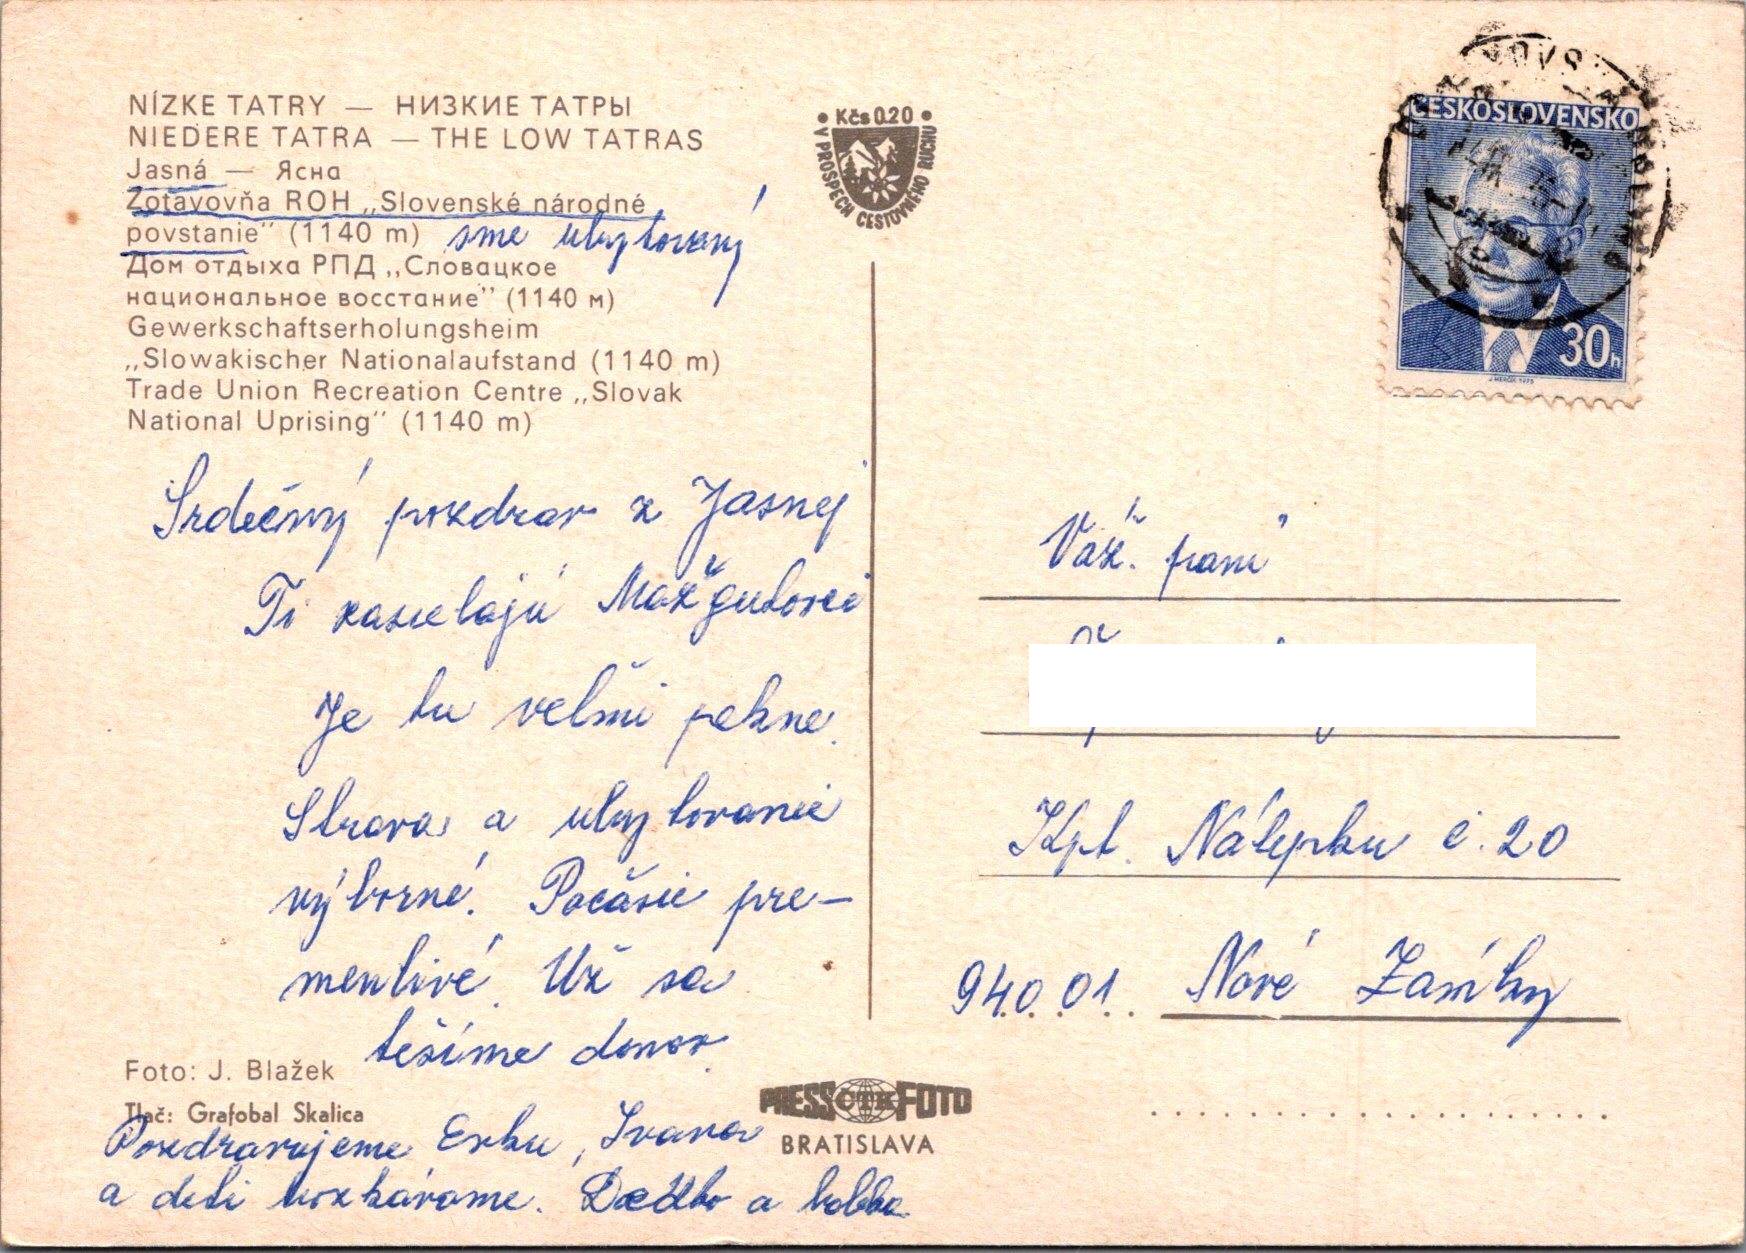 NÍZKE TATRY — НИЗКИЕ ТАТРЫ
NIEDERE TATRA — THE LOW TATRAS
Jasná — Ясна
Zotavovňa ROH „Slovenské národné
povstanie" (1140 m) sme ubytovaný
Дом отдыха РПД „Словацкое
национальное восстание" (1140 м)
Gewerkschaftserholungsheim
„Slowakischer Nationalaufstand (1140 m)
Trade Union Recreation Centre „Slovak
National Uprising" (1140 m)
Srdečný pozdrav z Jasnej
Ti zasielajú
Je tu veľmi pekne.
Strava a ubytovanie
výborné. Počásie pre-
menlivé. Už sa
tešíme domov.
Foto: J. Blažek
Tlač: Grafobal Skalica
Pozdravujeme Erku, Ivana
a deti bozkávame. Dedko a babka
Kčs 0.20
V PROSPECH CESTOVNÉHO RUCHU
PRESS ČTK FOTO
BRATISLAVA
ČESKOSLOVENSKO
30h
J. HERČÍK 1975
Váž. pani
Kpt. Nálepku č. 20
940 01 Nové Zámky